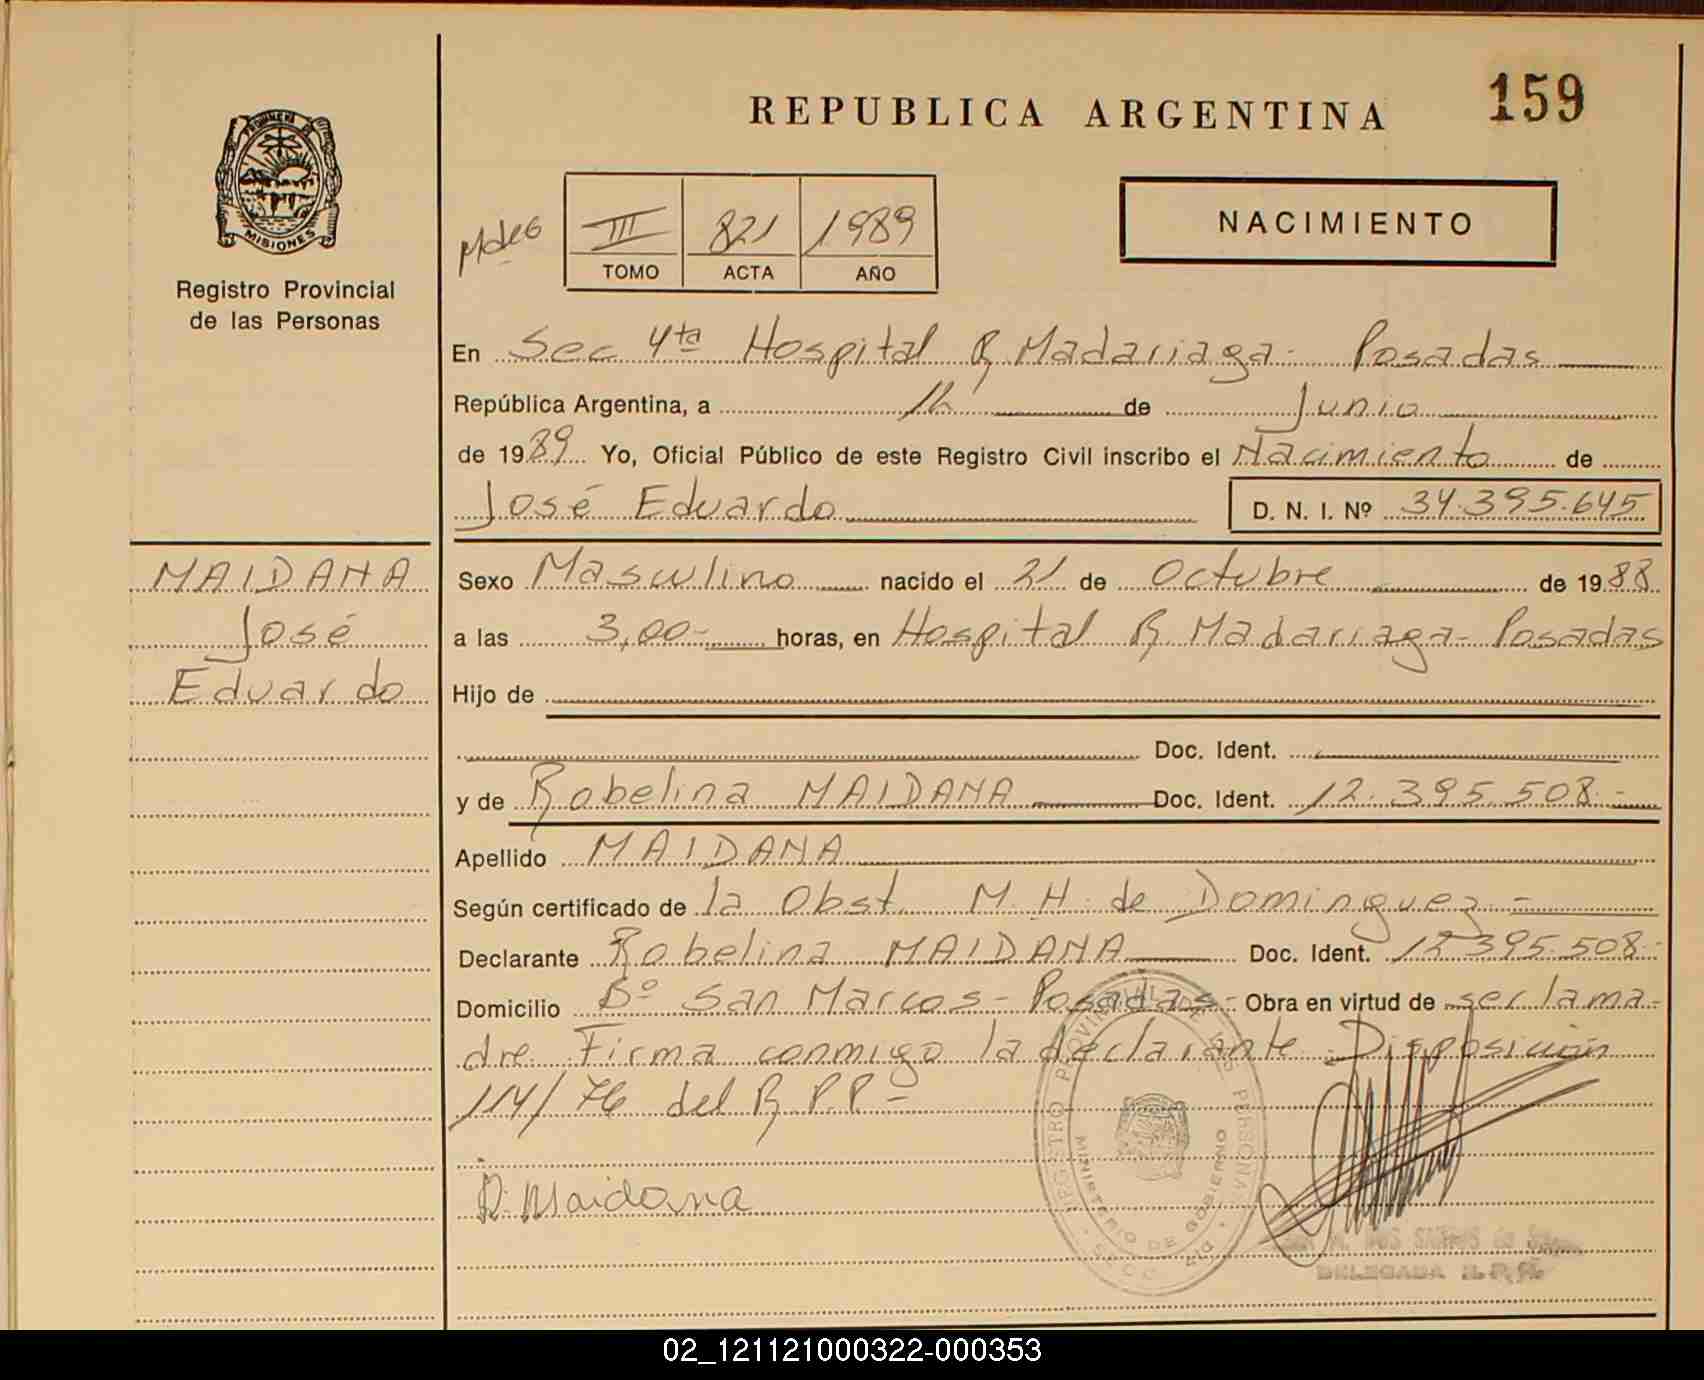 REPUBLICA ARGENTINA 159
PROVINCIA DE MISIONES
Registro Provincial
de las Personas
III 821 1989
TOMO ACTA AÑO
NACIMIENTO
En Sec 4ta Hospital R Madariaga - Posadas
República Argentina, a 12 de Junio
de 1989 Yo, Oficial Público de este Registro Civil inscribo el Nacimiento de
José Eduardo D. N. I. Nº 34.395.645
MAIDANA
José
Eduardo
Sexo Masculino nacido el 21 de Octubre de 1988
a las 3,00- horas, en Hospital R. Madariaga - Posadas
Hijo de
Doc. Ident.
y de Robelina MAIDANA Doc. Ident. 12.395.508.-
Apellido MAIDANA
Según certificado de la Obst. M. H. de Dominguez -
Declarante Robelina MAIDANA Doc. Ident. 12.395.508-
Domicilio Bº San Marcos - Posadas - Obra en virtud de ser la ma-
dre. Firma conmigo la declarante. Disposición
114/76 del R. P. P. -
R. Maidana
REGISTRO PROVINCIAL DE LAS PERSONAS
MINISTERIO DE GOBIERNO
DOS SANTOS de
DELEGADA R.P.P.
02_121121000322-000353